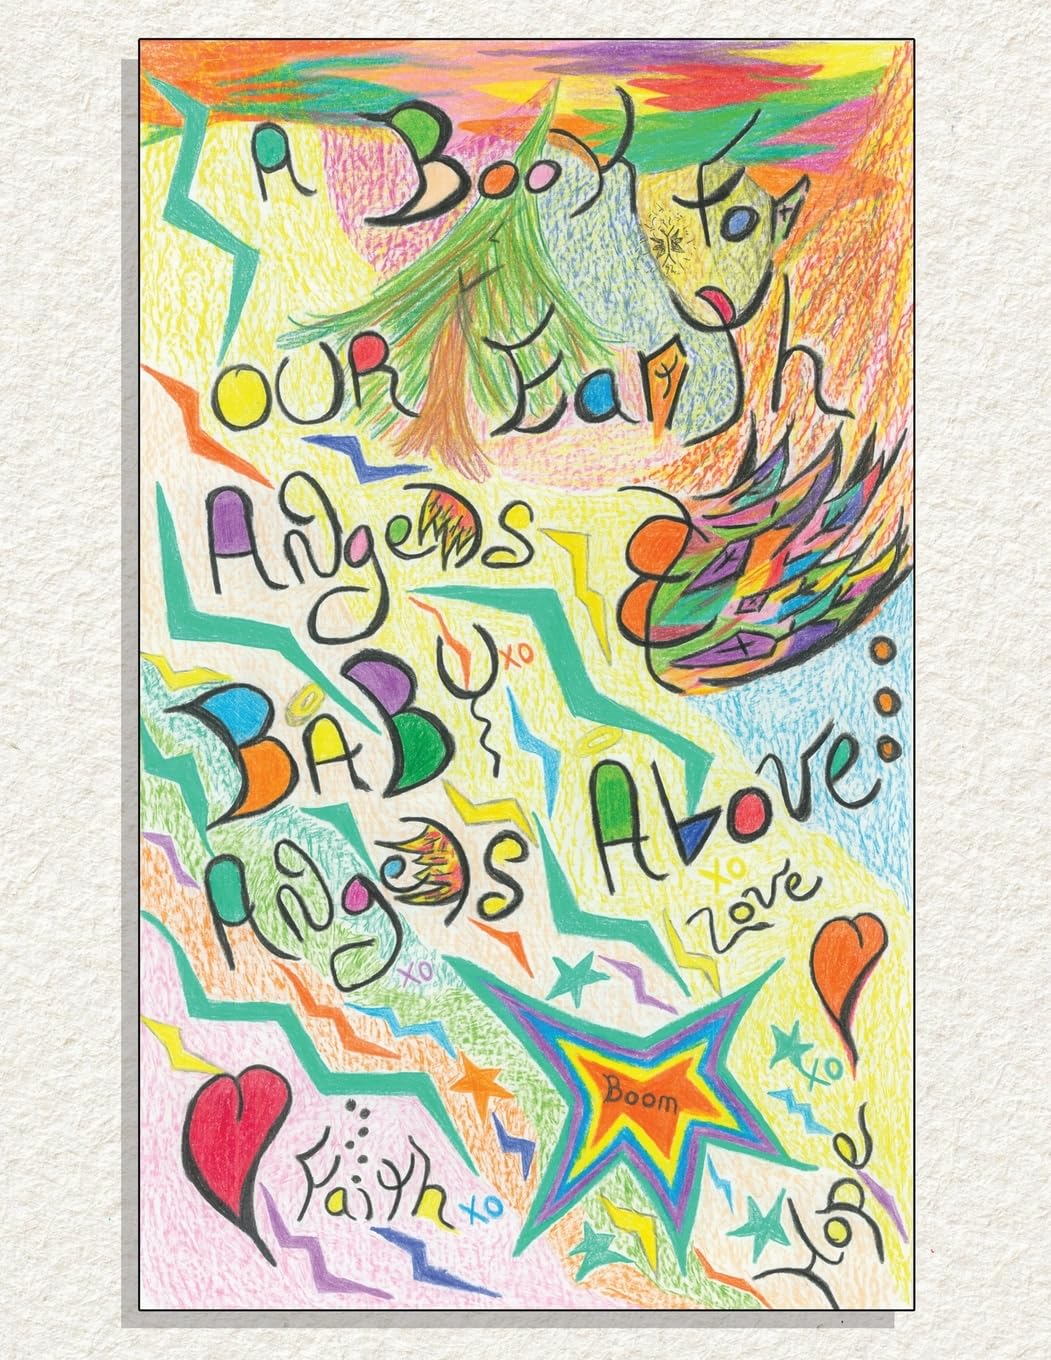 A Book for
OUR Earth
Angels
BABY XO
Angels XO
Above
XO
Love
Boom
XO
Faith XO
Hope